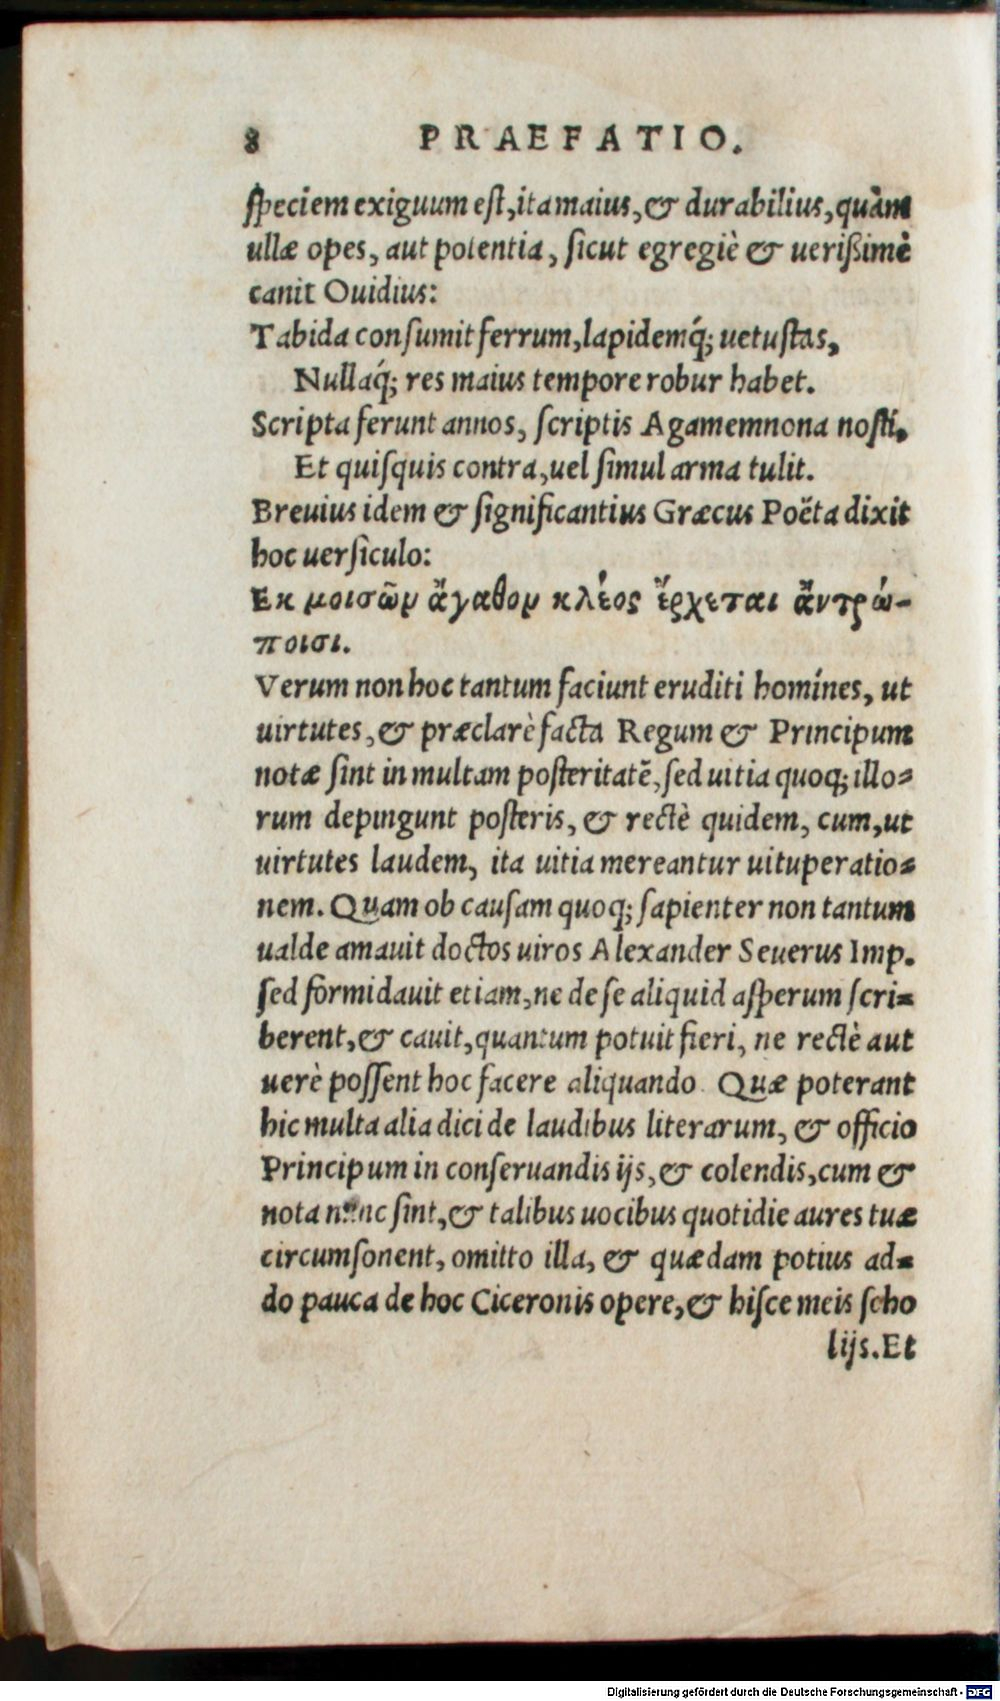 8 PRAEFATIO.
ſpeciem exiguum eſt, ita maius, & durabilius, quàm
ullæ opes, aut potentia, ſicut egregiè & ueriſsimè
canit Ouidius:
Tabida conſumit ferrum, lapidemq́; uetuſtas,
Nullaq́; res maius tempore robur habet.
Scripta ferunt annos, ſcriptis Agamemnona noſti,
Et quiſquis contra, uel ſimul arma tulit.
Breuius idem & ſignificantius Græcus Poëta dixit
hoc uerſiculo:
Εκ μοισῶν ἄγαθον κλέος ἔρχεται ἄντρώ-
ποισι.
Verum non hoc tantum faciunt eruditi homínes, ut
uirtutes, & præclarè facta Regum & Principum
notæ ſint in multam poſteritatē, ſed uitia quoq; illo-
rum depingunt poſteris, & rectè quidem, cum, ut
uirtutes laudem, ita uitia mereantur uituperatio-
nem. Quam ob cauſam quoq; ſapienter non tantum
ualde amauit doctos uiros Alexander Seuerus Imp.
ſed formidauit etiam, ne de ſe aliquid aſperum ſcri-
berent, & cauit, quantum potuit fieri, ne rectè aut
uerè poſſent hoc facere aliquando. Quæ poterant
hic multa alia dici de laudibus literarum, & officio
Principum in conſeruandis ijs, & colendis, cum &
nota nunc ſint, & talibus uocibus quotidie aures tuæ
circumſonent, omitto illa, & quædam potius ad-
do pauca de hoc Ciceronis opere, & hiſce meis ſcho
lijs. Et
Digitalisierung gefördert durch die Deutsche Forschungsgemeinschaft - DFG